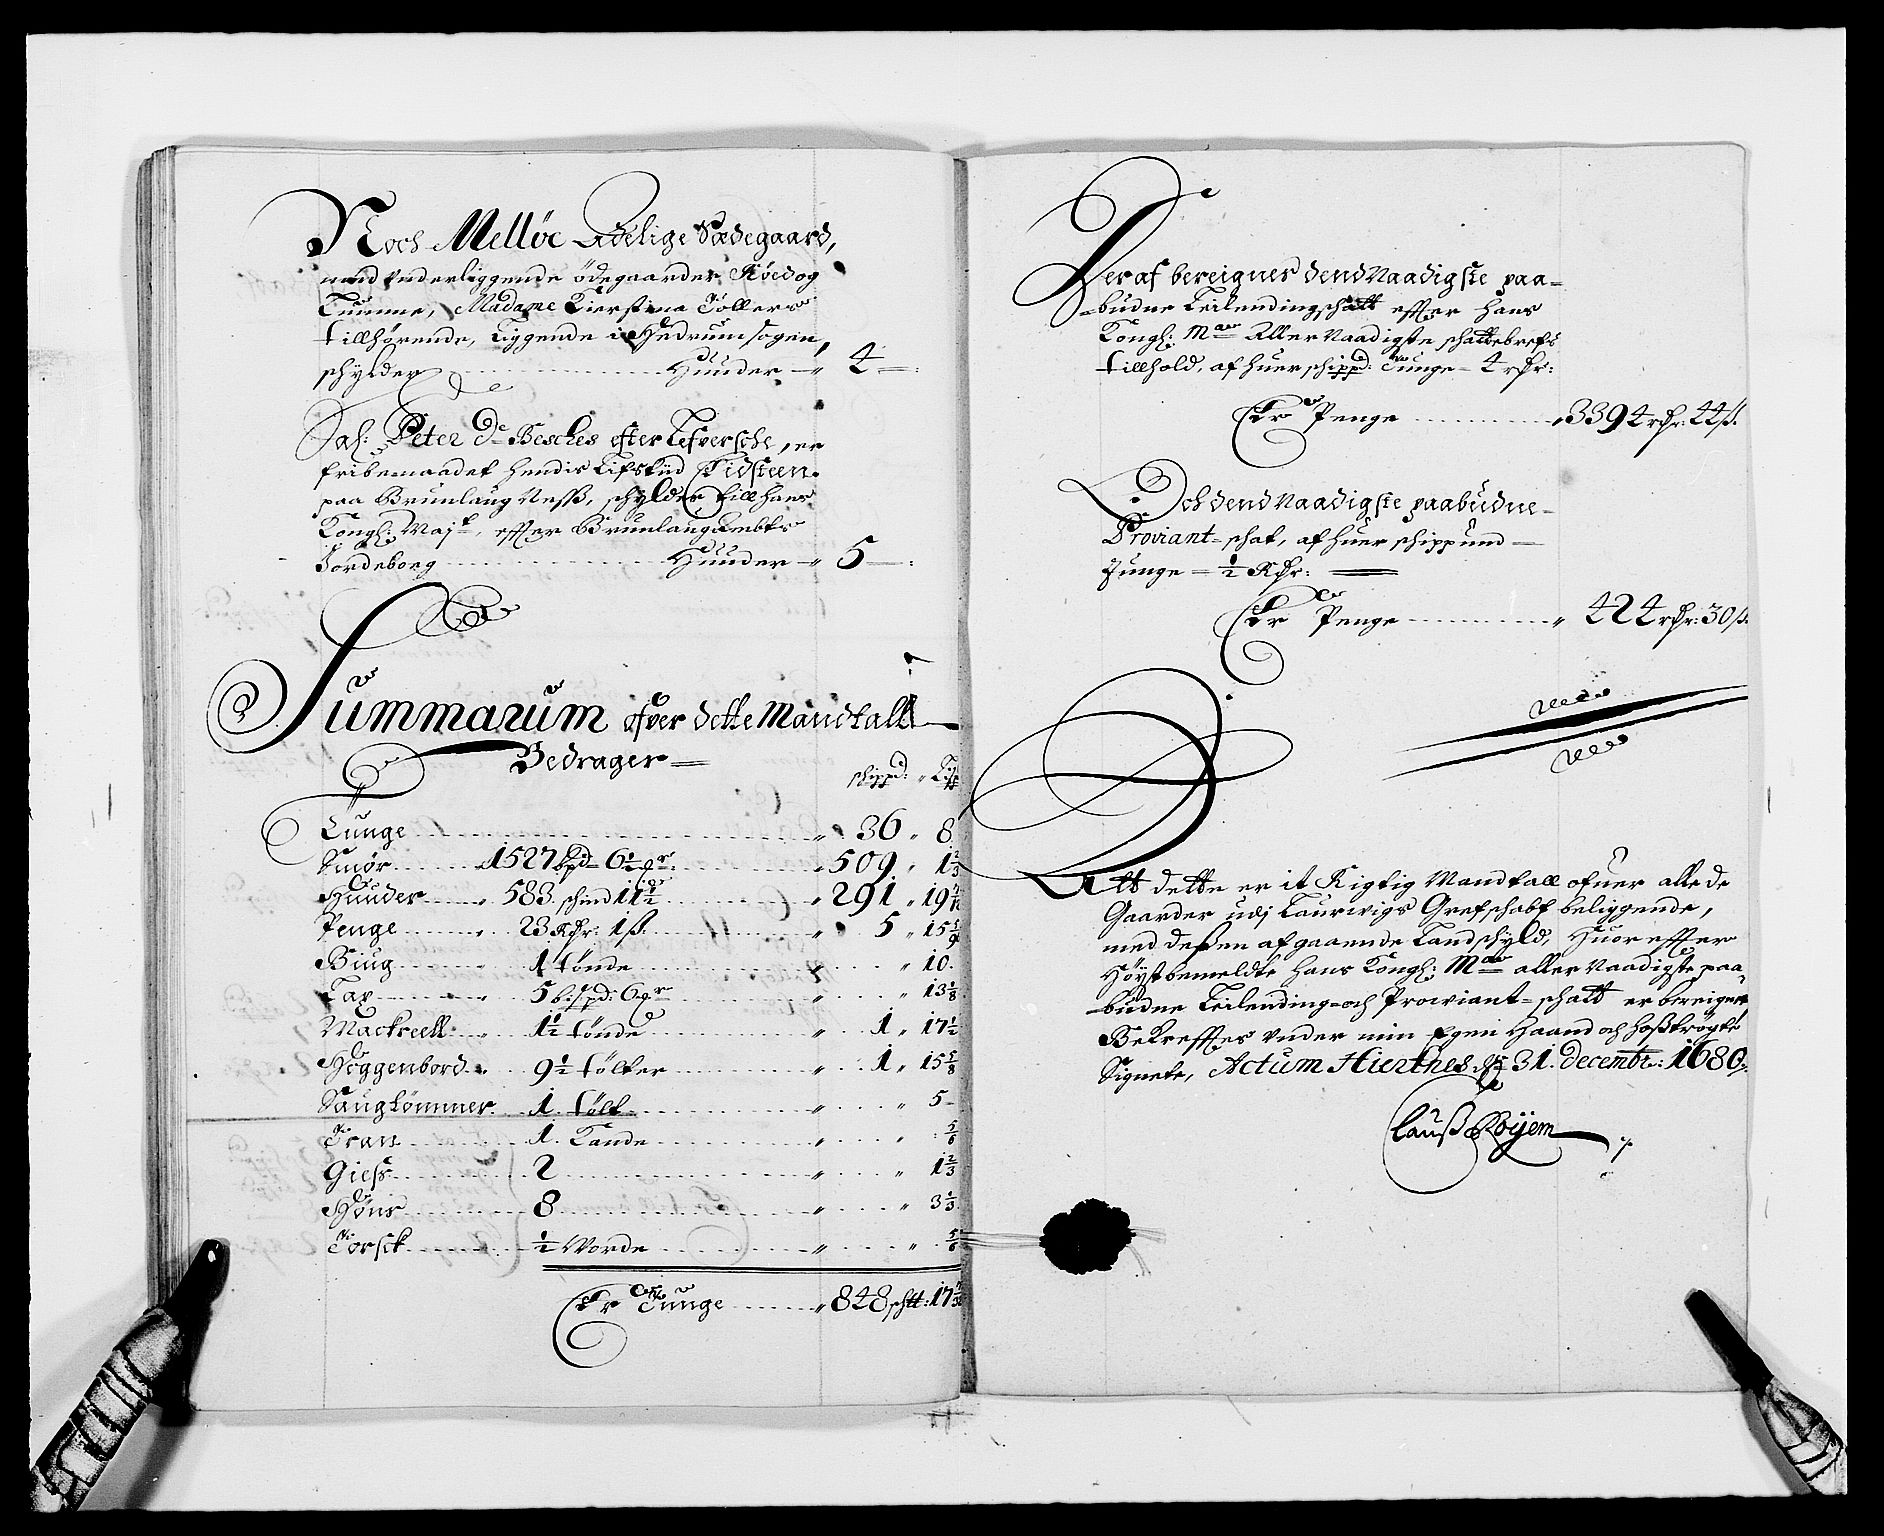 Noch Melløe Adelige Sædegaard,
med underliggende ødegaarder Røed og
Tumme, Madame Kierstina Tøllers
tillhørende, Liggende i Hedrum sogen,
schylder Huuder 4
Sal: Peter De Besches efter Lefversche, er
fribemaadet hendis Lifstiid Tidsteen
paa Brunlaug Neß, schylder till hans
Kongl: Majt. effter Brunlaugambts
Jordeborg Huuder 5
Summarum ofver dette Mandtall
Bedrager
schippd: Lispd
Tunge 36 8
Smør 1527 bpd 6½ mr: 509 1 2/3
Huuder 583 schind 11½ 291 19
Penge 23 Rdr: 1 ß. 5 15
Biug 1 tønde 10
Tax 5 bispd: 6 mr 13 1/8
Mackreell 1½ tønde 1 17½
Høggenbord 9½ tølter 1 15 5/8
Saugtømmer 1 tølt 5
Tran 1 Kande 5/6
Gieß 2 1 2/3
Høns 8 3 1/3
Torsck ½ Vorde 5/6
Er Tunge 848 schtt: 17
Her af bereignes dend Naadigste paa-
-budne Leilendingschatt effter Hans
Kongl: May Aller Naadigste schattebrefs
tillhold, af huer schippd: Tunge 4 rdr:
Er Penge 3394 rdr: 44 ß.
Och dend Naadigste paabudne
Proviant-schat, af huer schippund
Tunge ½ Rdr:
Er Penge 424 rdr: 30 ß.
Att dette er it Rigtig Mandtall ofuer alle de
Gaarder udj Laurwigs Grefschabf beliggende,
med deßen afgaaende Landschyld, Huor effter
Høystbemeldte Hans Kongl: May aller Naadigste paa-
budne Leilending- och Proviant-schatt er bereignet
Bekreffter under min Egen Haand och hoßtrøgte
Signete, Actum Hiertnes d. 31. decembr: 1680.
Clauß Røyem